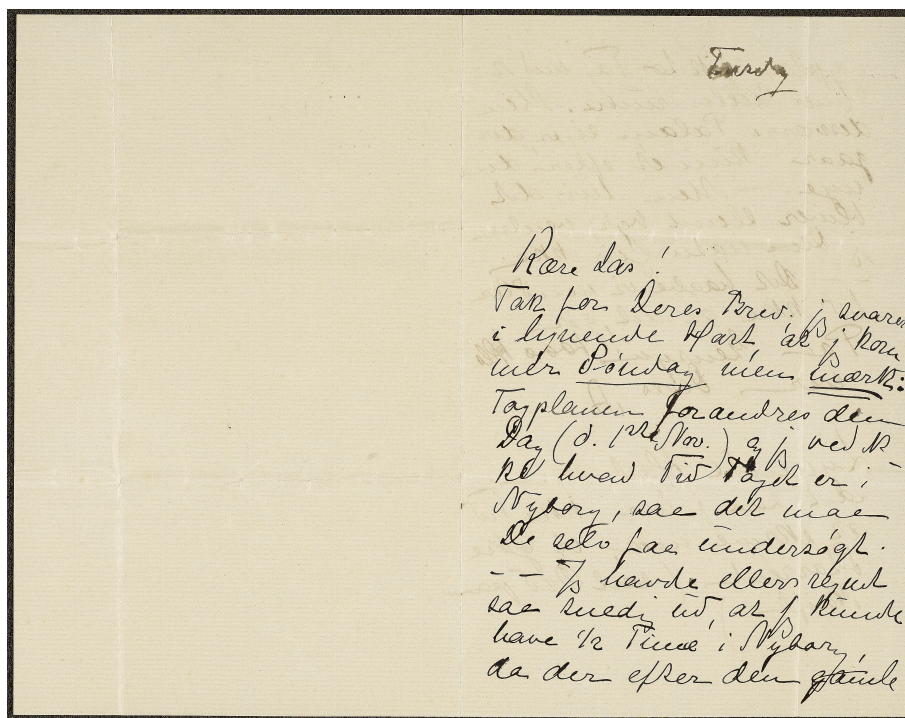 Tirsdag
Kære Las!
Tak for Deres Brev. jeg svarer
i lynende Hart at j kom
mer Søndag men mærk:
Togplanen forandres den
Dag (d. 1ste Nov.) og jg ved ik
ke hvad Tid Toget er i
Nyborg, saa det maa
De selv faa undersøgt.
– – Jg havde ellers regnet
saa snedig ud, at jg kunde
have 1/2 Time i Nyborg,
da der efter den gamle